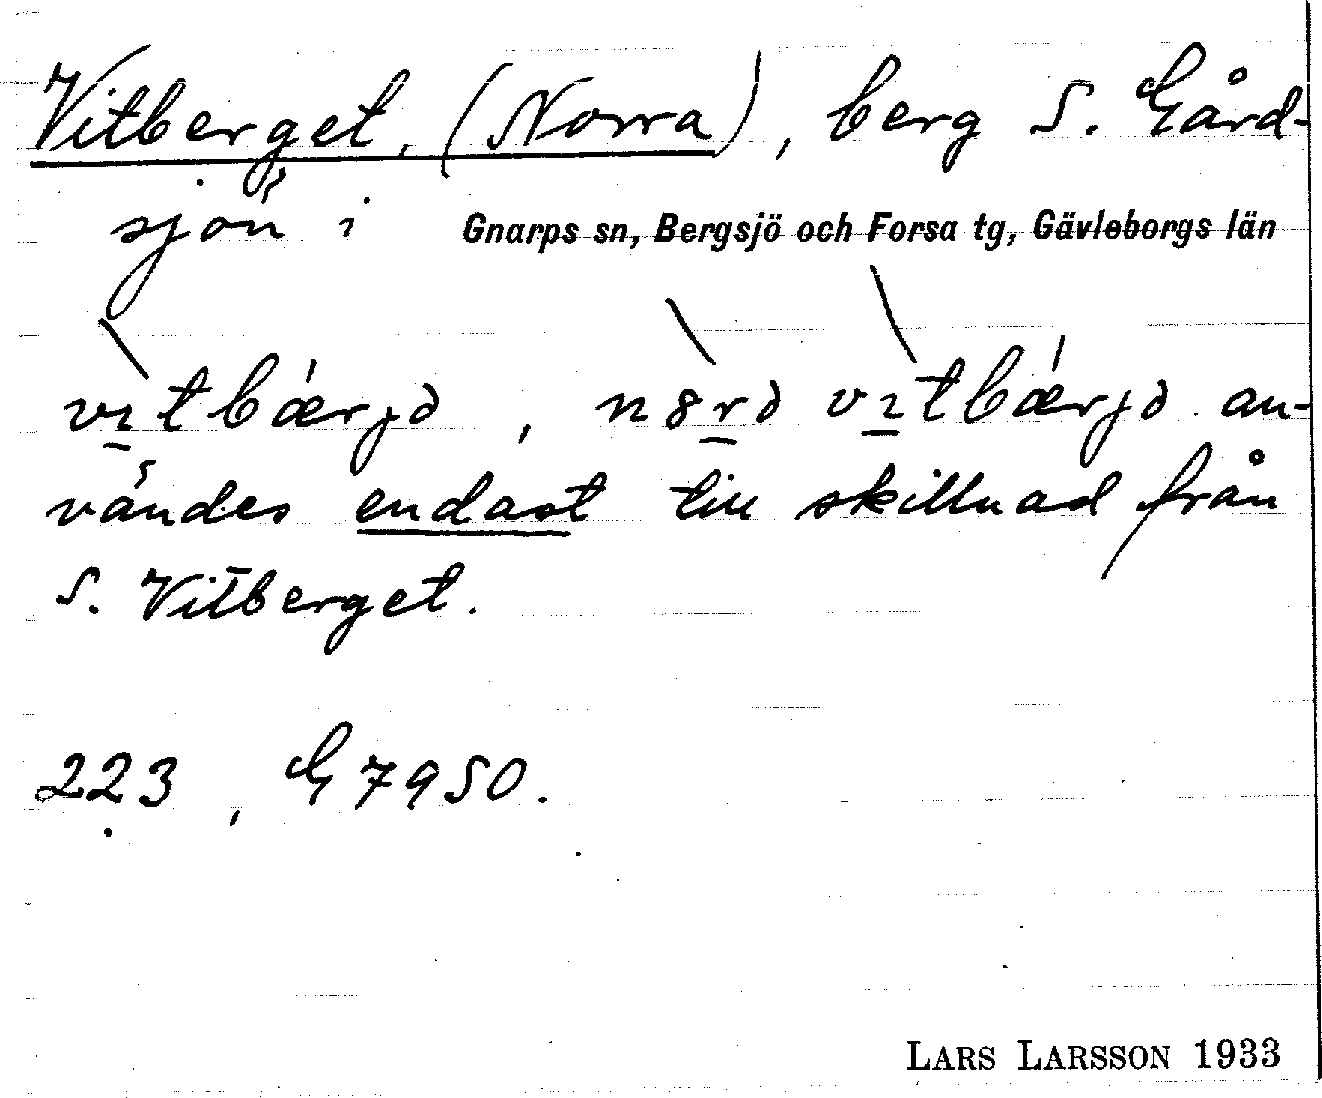 Vitberget, (Norra), berg S. Gård-
sjön i Gnarps sn, Bergsjö och Forsa tg, Gävleborgs län
vɪ̠̀tbǽrjə, nə̀r̠ə vɪ̠̀tbǽrjə an-
vändes endast till skillnad från
S. Vitberget.
223, G 7950.
LARS LARSSON 1933